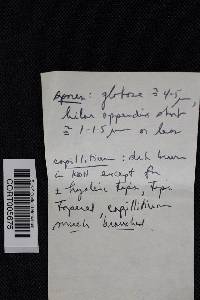 spores: globose ≅ 4-5 µm,
hilar appendix short
≅ 1-1.5 µm or less
capillitium: dark brown
in KOH except for
± hyaline tips, tips
tapered, capillitium
much branched.
CORT005675